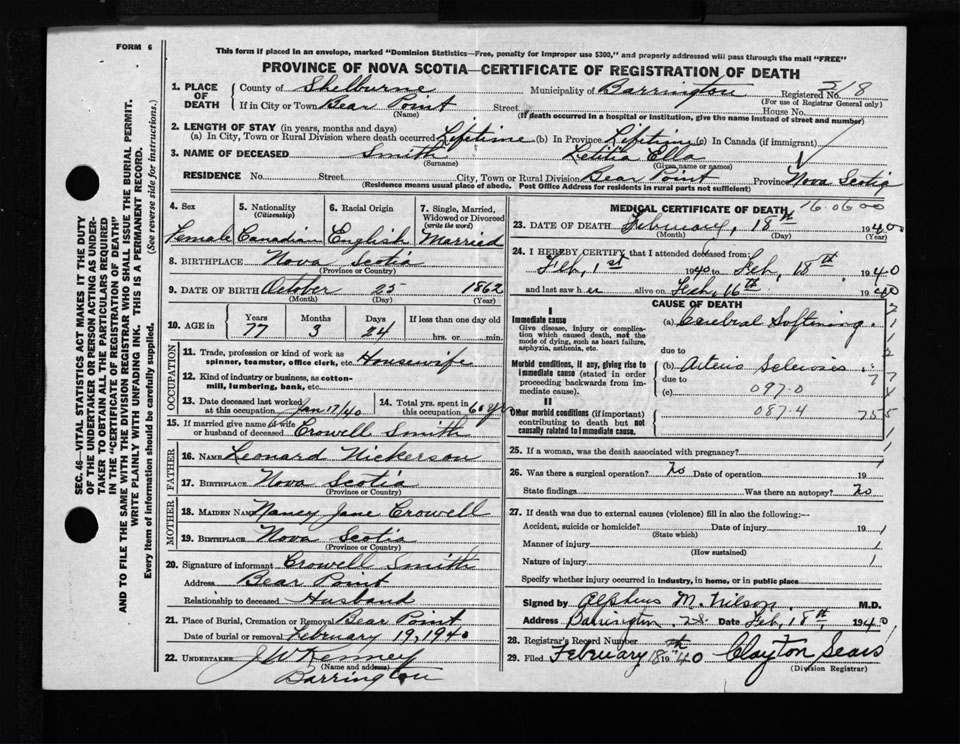 FORM 6
This form if placed in an envelope, marked "Dominion Statistics—Free, penalty for improper use $300," and properly addressed will pass through the mail "FREE"
PROVINCE OF NOVA SCOTIA—CERTIFICATE OF REGISTRATION OF DEATH
1. PLACE OF DEATH
County of Shelburne Municipality of Barrington Registered No. 18
(For use of Registrar General only)
If in City or Town Bear Point Street House No.
(Name) (If death occurred in a hospital or institution, give the name instead of street and number)
2. LENGTH OF STAY (in years, months and days)
(a) In City, Town or Rural Division where death occurred Lifetime (b) In Province Lifetime (c) In Canada (if immigrant)
3. NAME OF DECEASED Smith Letitia Ella
(Surname) (Given name or names)
RESIDENCE No. Street City, Town or Rural Division Bear Point Province Nova Scotia
(Residence means usual place of abode. Post Office Address for residents in rural parts not sufficient)
4. Sex Female
5. Nationality (Citizenship) Canadian
6. Racial Origin English
7. Single, Married, Widowed or Divorced (write the word) Married
8. BIRTHPLACE Nova Scotia
(Province or Country)
9. DATE OF BIRTH October 25 1862
(Month) (Day) (Year)
10. AGE in Years Months Days If less than one day old
77 3 24 hrs. or min.
OCCUPATION
11. Trade, profession or kind of work as spinner, teamster, office clerk, etc. Housewife
12. Kind of industry or business, as cotton-mill, lumbering, bank, etc.
13. Date deceased last worked at this occupation Jan 17/40
14. Total yrs. spent in this occupation 60 yrs
15. If married give name of wife or husband of deceased Crowell Smith
FATHER
16. NAME Leonard Nickerson
17. BIRTHPLACE Nova Scotia
(Province or Country)
MOTHER
18. MAIDEN NAME Nancy Jane Crowell
19. BIRTHPLACE Nova Scotia
(Province or Country)
20. Signature of informant Crowell Smith
Address Bear Point
Relationship to deceased Husband
21. Place of Burial, Cremation or Removal Bear Point
Date of burial or removal February 19, 1940
22. UNDERTAKER J W Kenney
(Name and address)
Barrington
MEDICAL CERTIFICATE OF DEATH
16.06.00
23. DATE OF DEATH February, 18th 1940
(Month) (Day) (Year)
24. I HEREBY CERTIFY that I attended deceased from:
Feb, 1st 1940 to Feb, 18th, 1940
and last saw her alive on Feb, 16th, 1940
CAUSE OF DEATH
I
Immediate cause
Give disease, injury or complication which caused death, not the mode of dying, such as heart failure, asphyxia, asthenia, etc.
(a) Cerebral Softening.
due to
Morbid conditions, if any, giving rise to immediate cause (stated in order proceeding backwards from immediate cause).
(b) Arterio Sclerosis
due to
(c) 097.0
II
087.4
Other morbid conditions (if important) contributing to death but not causally related to immediate cause.
25. If a woman, was the death associated with pregnancy?
26. Was there a surgical operation? No Date of operation 19
State findings Was there an autopsy? No
27. If death was due to external causes (violence) fill in also the following:—
Accident, suicide or homicide? Date of injury 19
(State which)
Manner of injury
(How sustained)
Nature of injury
Specify whether injury occurred in industry, in home, or in public place
Signed by Alpheus M. Wilson M.D.
Address Barrington, N.S. Date Feb, 18th, 1940
28. Registrar's Record Number
29. Filed February 18th 1940 Clayton Sears
(Division Registrar)
SEC. 46—VITAL STATISTICS ACT MAKES IT THE DUTY
OF THE UNDERTAKER OR PERSON ACTING AS UNDER-
TAKER TO OBTAIN ALL THE PARTICULARS REQUIRED
IN THE "CERTIFICATE OF REGISTRATION OF DEATH"
AND TO FILE THE SAME WITH THE DIVISION REGISTRAR WHO SHALL ISSUE THE BURIAL PERMIT.
WRITE PLAINLY WITH UNFADING INK. THIS IS A PERMANENT RECORD.
Every item of information should be carefully supplied. (See reverse side for instructions.)